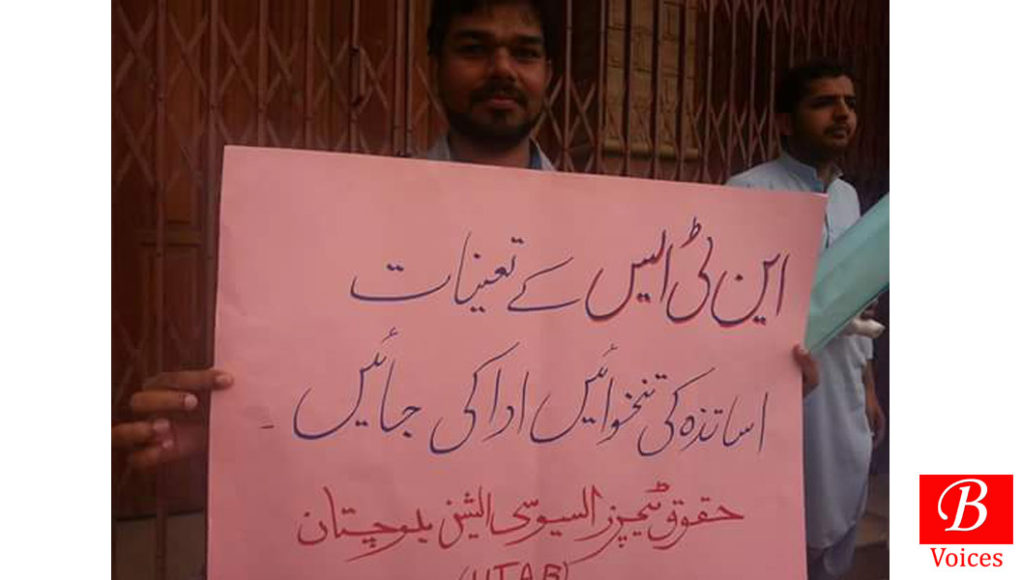 این ٹی ایس کے تعینات
اساتذہ کی تنخوائیں ادا کی جائیں ۔
حقوق ٹیچرز ایسوسی ایشن بلوچستان
(HTAB)
B
Voices